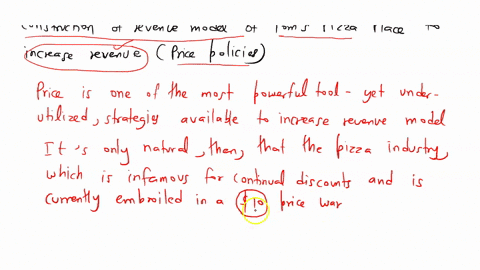 construction of revenue model of Tom's Pizza Place to
increase revenue (Price policies)
Price is one of the most powerful tool - yet under-
utilized, strategies available to increase revenue model
It's only natural, then, that the pizza industry,
which is infamous for continual discounts and is
currently embroiled in a $10 price war